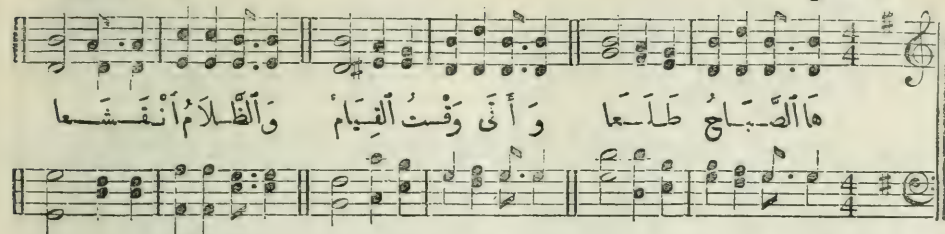 هَا ٱلصَّبَاحُ طَلَعَا وَأَتَى وَقْتُ ٱلْقِيَامْ وَٱلظَّلَامُ ٱنْقَشَعا